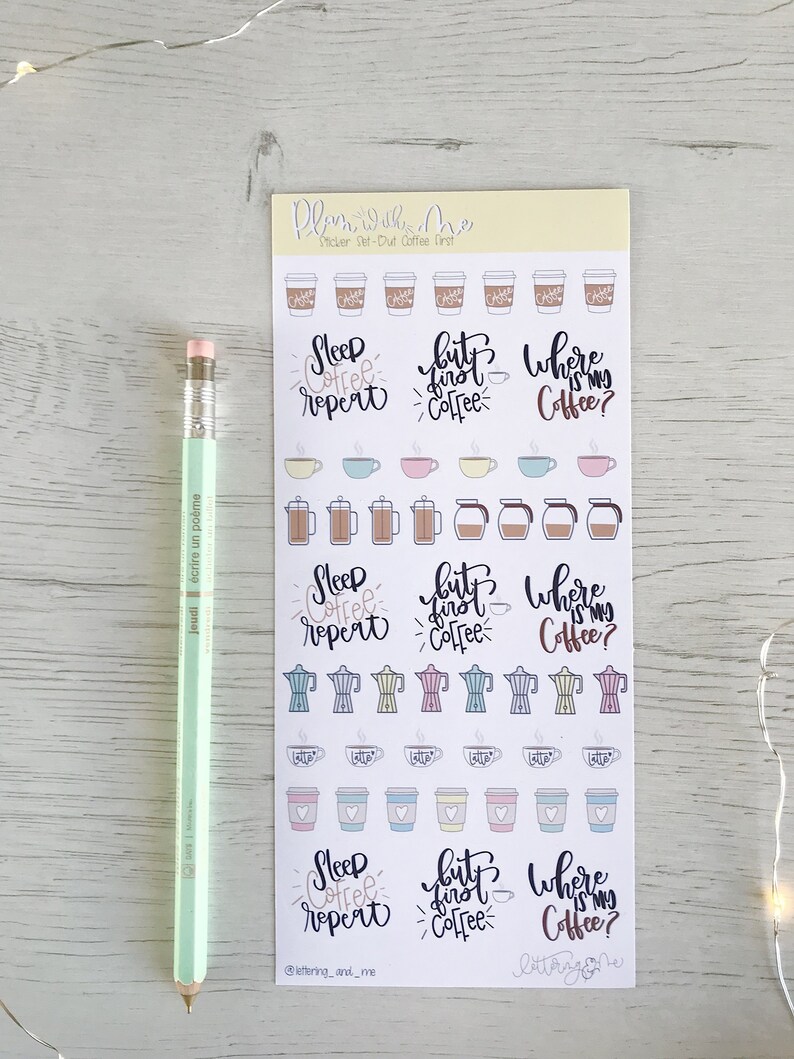 Plan with Me
Sticker Set-But Coffee First
Coffee Coffee Coffee Coffee Coffee Coffee Coffee
Sleep
Coffee
repeat
but
first
coffee
Where
is my
Coffee?
Sleep
Coffee
repeat
but
first
coffee
Where
is my
Coffee?
Latte Latte Latte Latte Latte Latte
Sleep
Coffee
repeat
but
first
coffee
Where
is my
Coffee?
@lettering_and_me
lettering & me
écrire un poème
jeudi
vendredi
DAYS